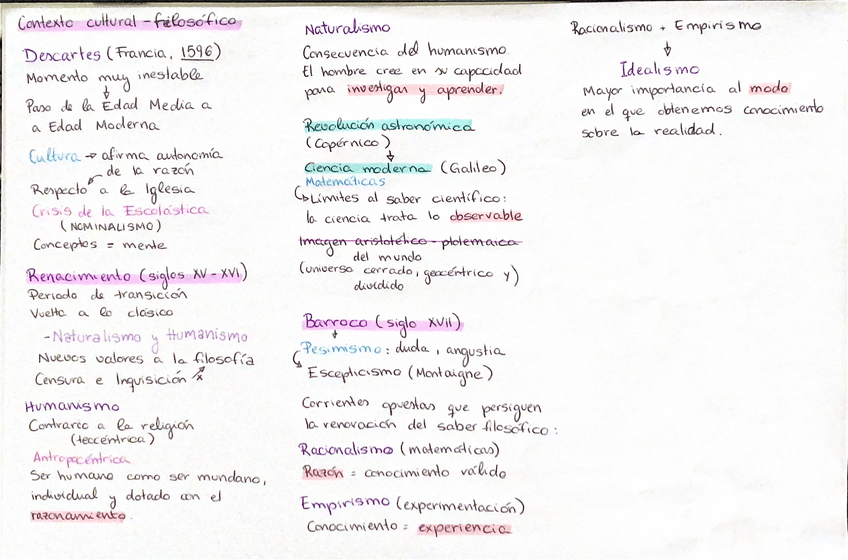 Contexto cultural - filosófico
Descartes (Francia, 1596)
Momento muy inestable
↓
Paso de la Edad Media a
a Edad Moderna
Cultura → afirma autonomía
de la razón
Respecto a la Iglesia
Crisis de la Escolástica
(NOMINALISMO)
Conceptos = mente
Renacimiento (siglos XV - XVI)
Periodo de transición
Vuelta a lo clásico
- Naturalismo y Humanismo
Nuevos valores a la filosofía
Censura e Inquisición
Humanismo
Contrario a la religión
(teocéntrica)
Antropocéntrica
Ser humano como ser mundano,
individual y dotado con el
razonamiento.
Naturalismo
Consecuencia del humanismo
El hombre cree en su capacidad
para investigar y aprender.
Revolución astronómica
(Copérnico)
↓
Ciencia moderna (Galileo)
Matemáticas
↳ Límites al saber científico:
la ciencia trata lo observable
Imagen aristotélico - ptolemaica
del mundo
(universo cerrado, geocéntrico y)
dividido
Barroco (siglo XVII)
↓
Pesimismo: duda, angustia
↳ Escepticismo (Montaigne)
Corrientes opuestas que persiguen
la renovación del saber filosófico:
Racionalismo (matemáticas)
Razón = conocimiento válido
Empirismo (experimentación)
Conocimiento = experiencia
Racionalismo + Empirismo
↓
Idealismo
Mayor importancia al modo
en el que obtenemos conocimiento
sobre la realidad.